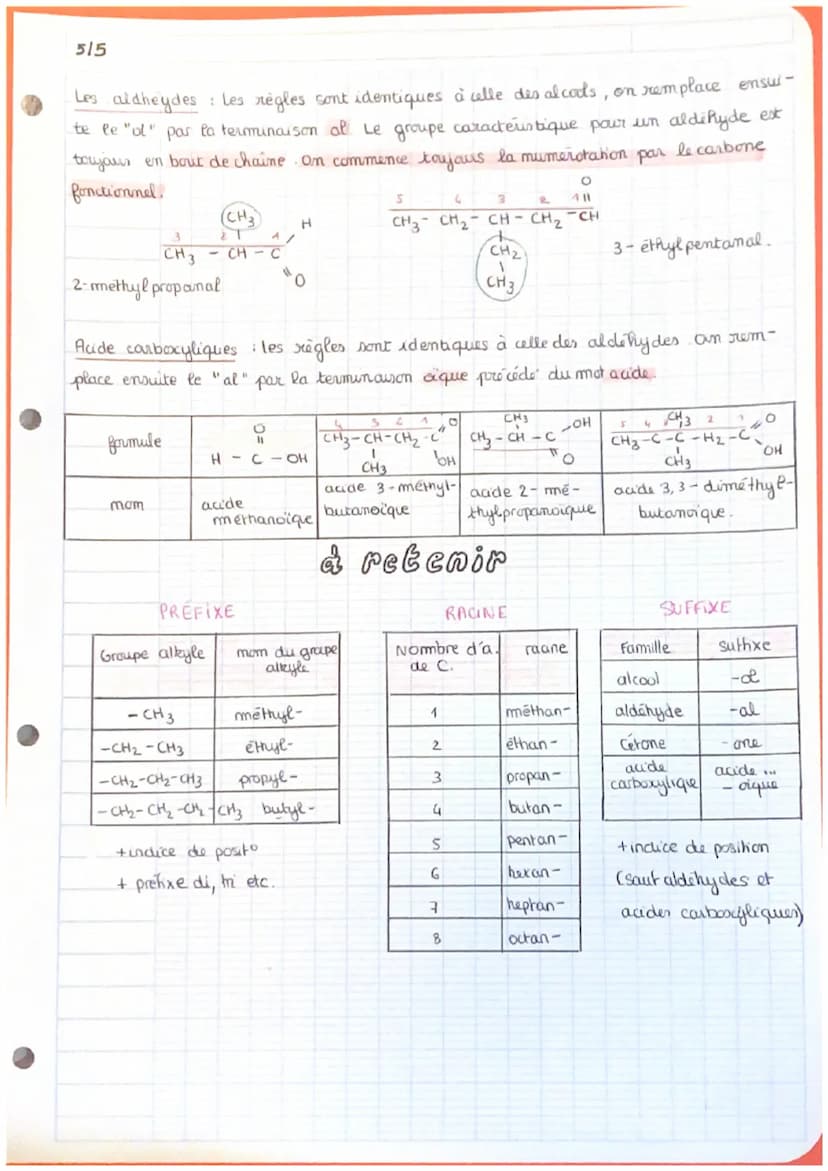 5/5
Les aldheydes : Les règles sont identiques à celle des alcools, on remplace ensui-
te le "ol" par la terminaison al. Le groupe caractéristique pour un aldéhyde est
toujours en bout de chaine. On commence toujours la numérotation par le carbone
fonctionnel.
O
5 4 3 2 1 ||
CH3 - CH2 - CH - CH2 - CH
CH2
CH3
3-éthylpentanal.
CH3
H
3 2 1
CH3 - CH - C
O
2-méthylpropanal
Acide carboxyliques : les règles sont identiques à celle des aldéhydes. On rem-
place ensuite le "al" par la terminaison oïque précédé du mot acide.
formule
O
||
H - C - OH
4 3 2 1 O
CH3-CH-CH2-C
CH3 OH
CH3
CH3 - CH - C OH
O
5 4 CH3 2 1 O
CH3-C-C-H2-C
CH3 OH
nom
acide
méthanoïque
acide 3-méthyl-
butanoïque
acide 2-mé-
thylpropanoïque
acide 3,3-diméthyl-
butanoïque.
à retenir
PRÉFIXE
Groupe alkyle nom du groupe
alkyle
-CH3 méthyl-
-CH2-CH3 éthyl-
-CH2-CH2-CH3 propyl-
-CH2-CH2-CH2-CH3 butyl-
+indice de posit°
+ préfixe di, tri etc.
RACINE
Nombre d'a. racine
de C.
1 méthan-
2 éthan-
3 propan-
4 butan-
5 pentan-
6 hexan-
7 heptan-
8 octan-
SUFFIXE
Famille suffixe
alcool -ol
aldéhyde -al
cétone -one
acide acide ...
carboxylique -oïque
+indice de position
(sauf aldéhydes et
acides carboxyliques)